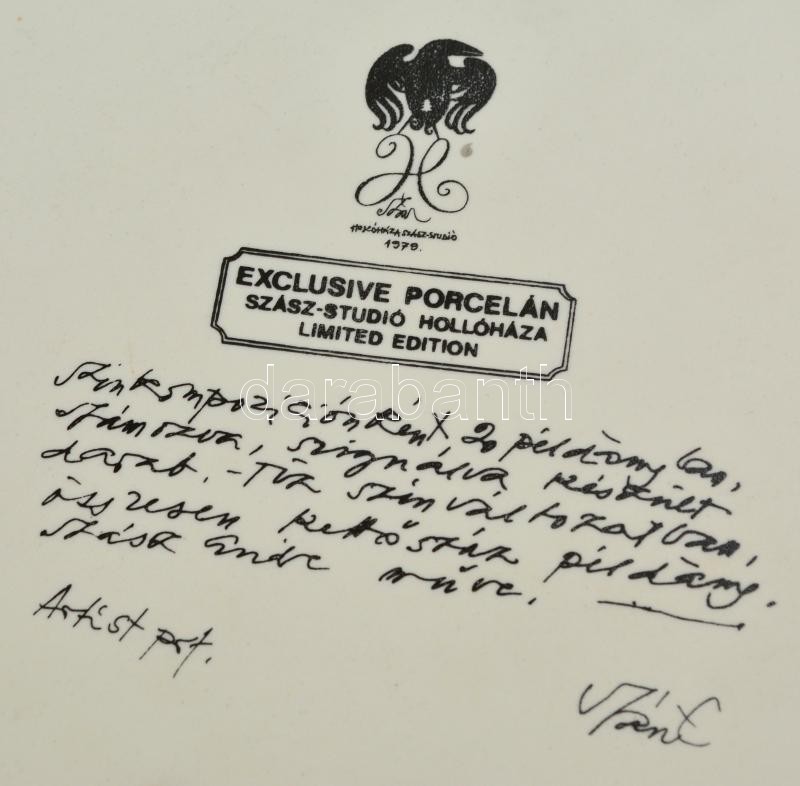 Szász
HOLLÓHÁZA SZÁSZ-STUDIÓ
1979.
EXCLUSIVE PORCELÁN
SZÁSZ-STUDIÓ HOLLÓHÁZA
LIMITED EDITION
darabanth
Szinkompoziciónként 20 példányban,
számozva, szignálva készült
darab. - Tiz szinváltozatban,
összesen kettőszáz példány.
Szász Endre műve.
Artist prf.
Szász E